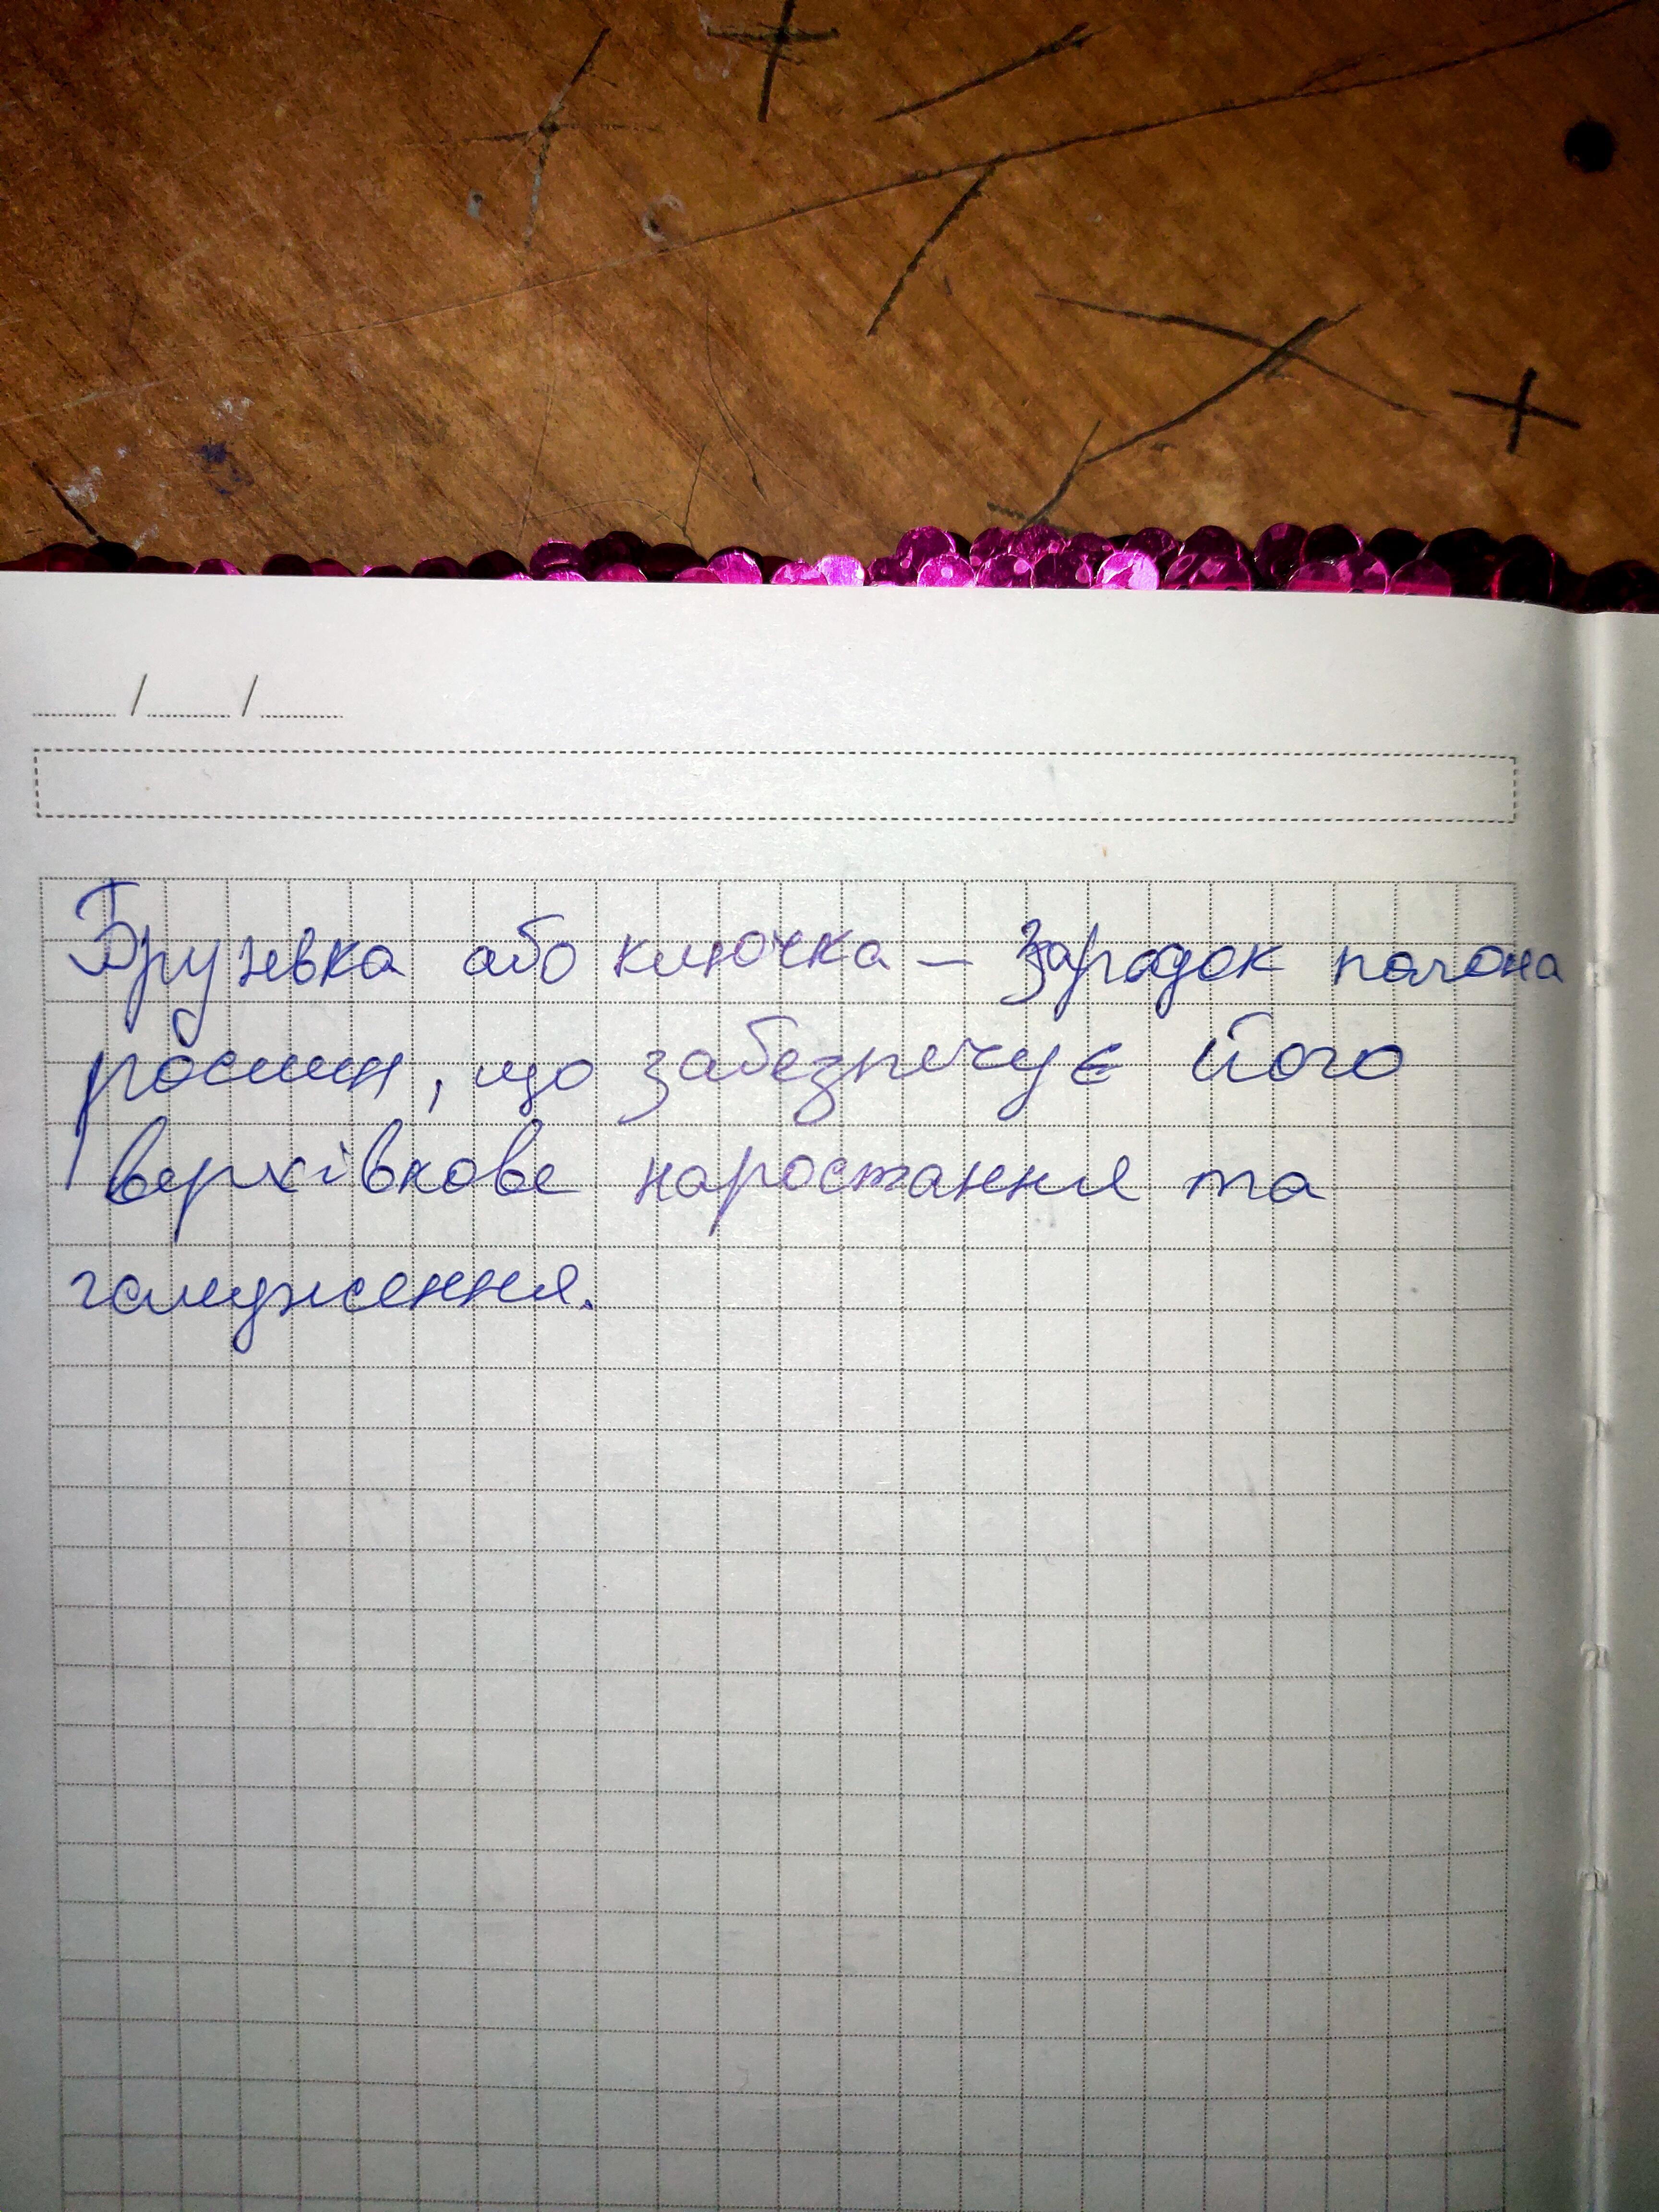 Брунька або кнючка – зародок пагона
рослин, що забезпечує його
верхівкове наростання та
галуження.